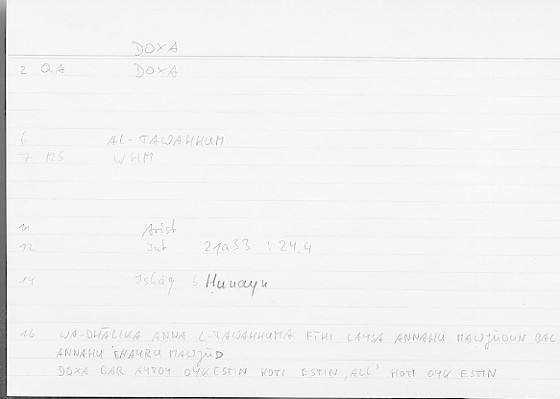 DOXA
2 QA DOXA
6 AL-TAWAHHUM
7 MS WHM
11 Arist
12 Int 21a33 : 24.4
14 Isḥāq b Ḥunayn
16 WA-DHĀLIKA ANNA L-TAWAHHUMA FĪHI LAYSA ANNAHU MAWJŪDUN BAL
ANNAHU GHAYRU MAWJŪD
DOXA GAR AYTOY OYK ESTIN HOTI ESTIN, ALL' HOTI OYK ESTIN